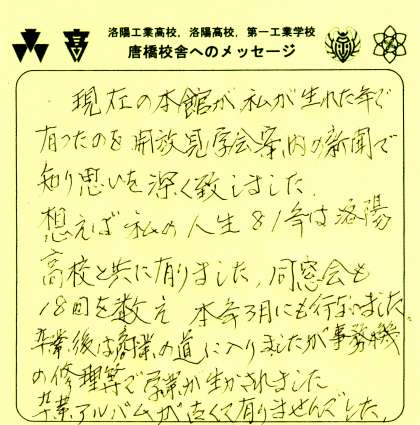 洛陽工業高校，洛陽高校，第一工業学校
唐橋校舎へのメッセージ
現在の本館が私が生れた年で
有ったのを開放見学会案内の新聞で
知り思いを深く致しました．
想えば私の人生81年は洛陽
高校と共に有りました，同窓会も
18回を数え 本年3月にも行ないました。
卒業後は商業の道に入りましたが事務機
の修理等で学業が生かされました
卒業アルバムが古くて有りませんでした．